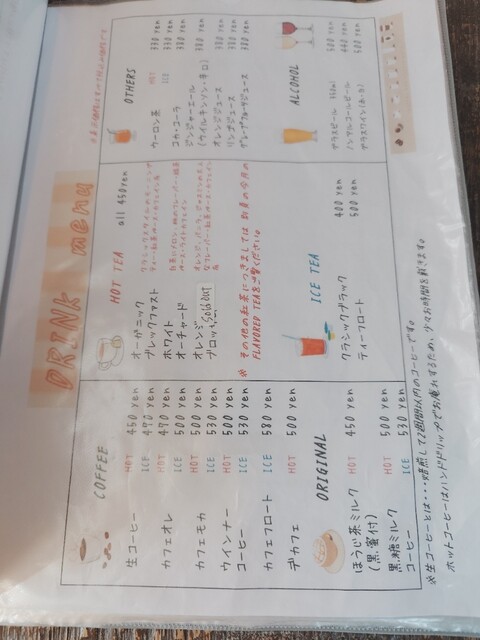 DRINK menu
COFFEE
生コーヒー HOT 450 yen
ICE 470 yen
カフェオレ HOT 470 yen
ICE 500 yen
カフェモカ HOT 500 yen
ICE 530 yen
ウインナー HOT 500 yen
コーヒー ICE 530 yen
カフェフロート ICE 580 yen
デカフェ HOT 500 yen
ORIGINAL
ほうじ茶ミルク HOT 450 yen
(黒蜜付)
黒糖ミルク HOT 500 yen
コーヒー ICE 530 yen
HOT TEA all 450yen
オーガニック
ブレックファスト
ホワイト
オーチャード
オレンジ
ブロッサ SOLD OUT
※ その他の紅茶につきましては 別頁の今月の
FLAVORED TEAをご覧ください。
ICE TEA
クラシックブラック 400 yen
ティーフロート 500 yen
OTHERS
ウーロン茶 HOT 330 yen
ICE 330 yen
コカ・コーラ 380 yen
ジンジャーエール
(ウィルキンソン・辛口) 380 yen
オレンジジュース 380 yen
リンゴジュース 380 yen
グレープフルーツジュース 380 yen
ALCOHOL
グラスビール 500 yen
ノンアルコールビール 440 yen
グラスワイン(赤・白) 500 yen
※生コーヒーとは・・・焙煎して2週間以内のコーヒーです。
ホットコーヒーはハンドドリップでお淹れするため、少々お時間を戴きます。